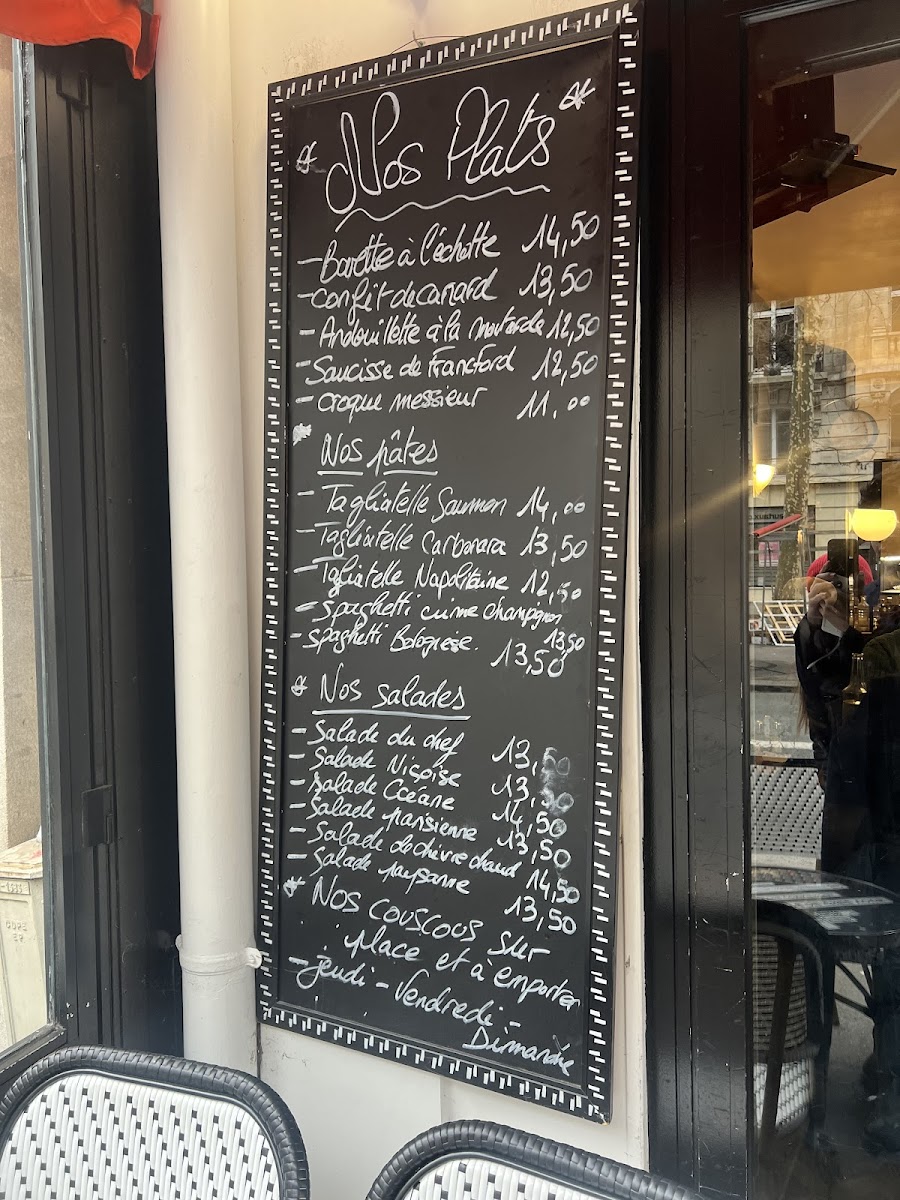 Nos Plats
- Bavette à l'échotte 14,50
- Confit de canard 13,50
- Andouillette à la moutarde 12,50
- Saucisse de Francford 12,50
- croque messieur 11,00
Nos pâtes
- Tagliatelle Saumon 14,00
- Tagliatelle Carbonara 13,50
- Tagliatelle Napolitaine 12,50
- Spaghetti crème champignon 13,50
- Spaghetti Bolognese. 13,50
Nos salades
- Salade du chef 13,50
- Salade Niçoise 13,50
- Salade Océane 14,50
- Salade parisienne 13,50
- Salade de chèvre chaud 14,50
- Salade paysanne 13,50
Nos couscous sur
place et à emporter
- jeudi - Vendredi -
Dimanche